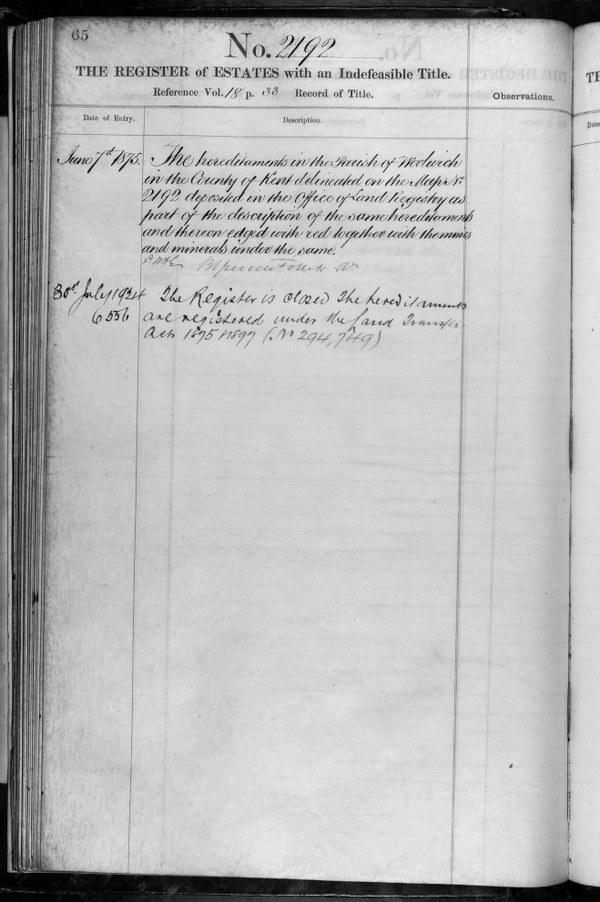 65
No. 2192
THE REGISTER of ESTATES with an Indefeasible Title.
Reference Vol. 18 p. 33 Record of Title.
Observations.
Date of Entry.
Description.
June 7th 1875.
The hereditaments in the Parish of Woolwich
in the County of Kent delineated on the Map No
2192 deposited in the Office of Land Registry as
part of the description of the same hereditaments
and thereon edged with red together with the mines
and minerals under the same.
30th July 1924
6556
The Register is closed The hereditaments
are registered under the Land Transfer
Acts 1875 & 1897 (No 294,749)